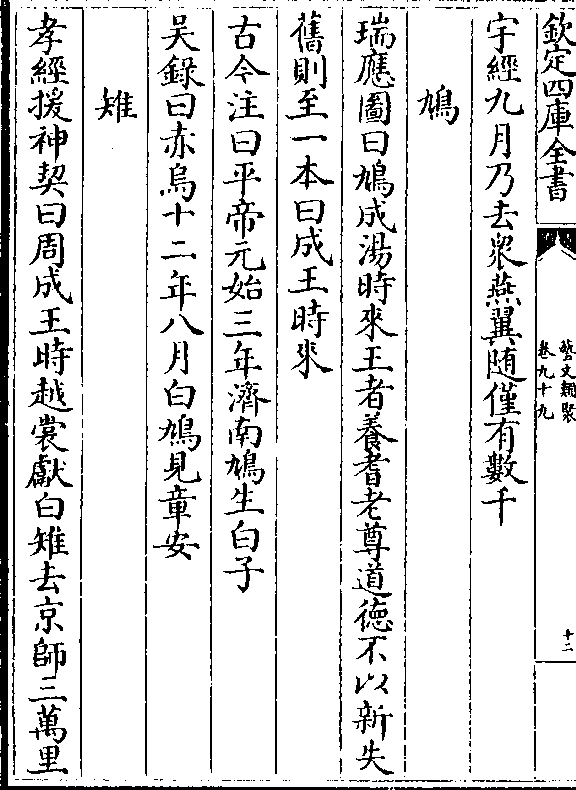 欽定四庫全書
藝文類聚
卷九十九
十二
宇經九月乃去衆燕翼随僅有數千
鳩
瑞應圖曰鳩成湯時來王者養耆老尊道徳不以新失
舊則至一本曰成王時來
古今注曰平帝元始三年濟南鳩生白子
吴錄曰赤烏十二年八月白鳩見章安
雉
孝經援神契曰周成王時越裳獻白雉去京師三萬里